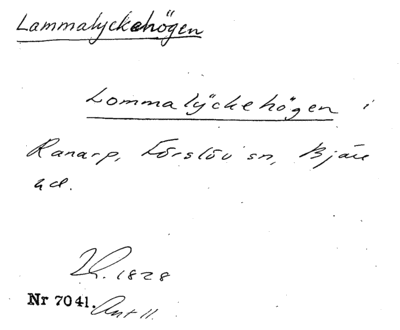 Lammalyckehögen
Lommalyckehögen i
Ranarp, Förslöv sn, Bjäre
hd.
1828
Nr 7041. Ant 11.